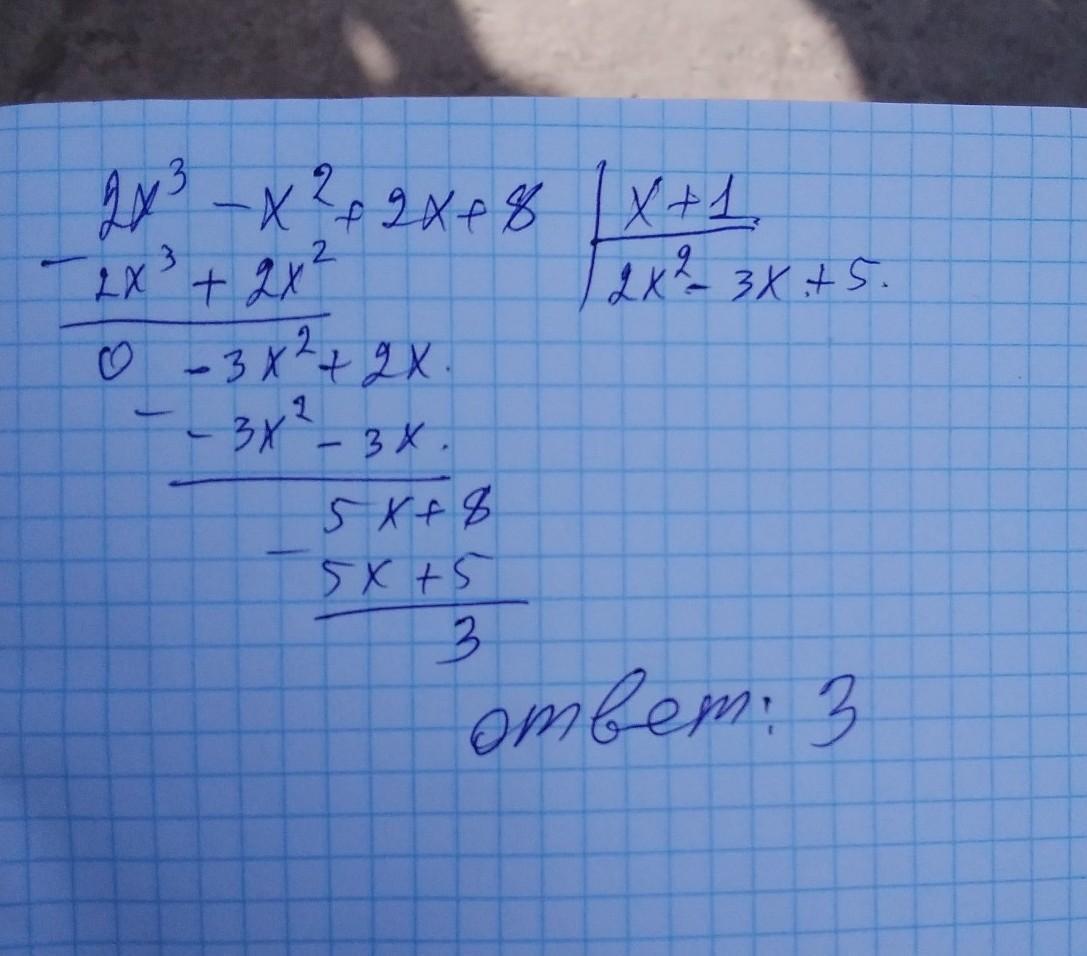 2x³ - x² + 2x + 8 | x + 1
- 2x³ + 2x² | 2x² - 3x + 5.
0 - 3x² + 2x.
- - 3x² - 3x.
5x + 8
- 5x + 5
3
ответ: 3